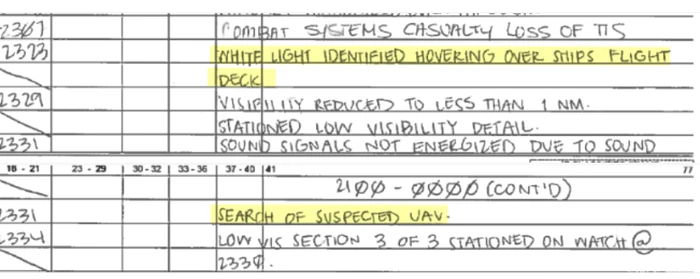 2307 COMBAT SYSTEMS CASUALTY LOSS OF TIS
2323 WHITE LIGHT IDENTIFIED HOVERING OVER SHIPS FLIGHT
DECK
2329 VISIBILITY REDUCED TO LESS THAN 1 NM.
STATIONED LOW VISIBILITY DETAIL.
2331 SOUND SIGNALS NOT ENERGIZED DUE TO SOUND
18 - 21 23 - 29 30 - 32 33 - 36 37 - 40 41 77
21ØØ - ØØØØ (CONT'D)
2331 SEARCH OF SUSPECTED UAV.
2334 LOW VIS SECTION 3 OF 3 STATIONED ON WATCH @
2334.